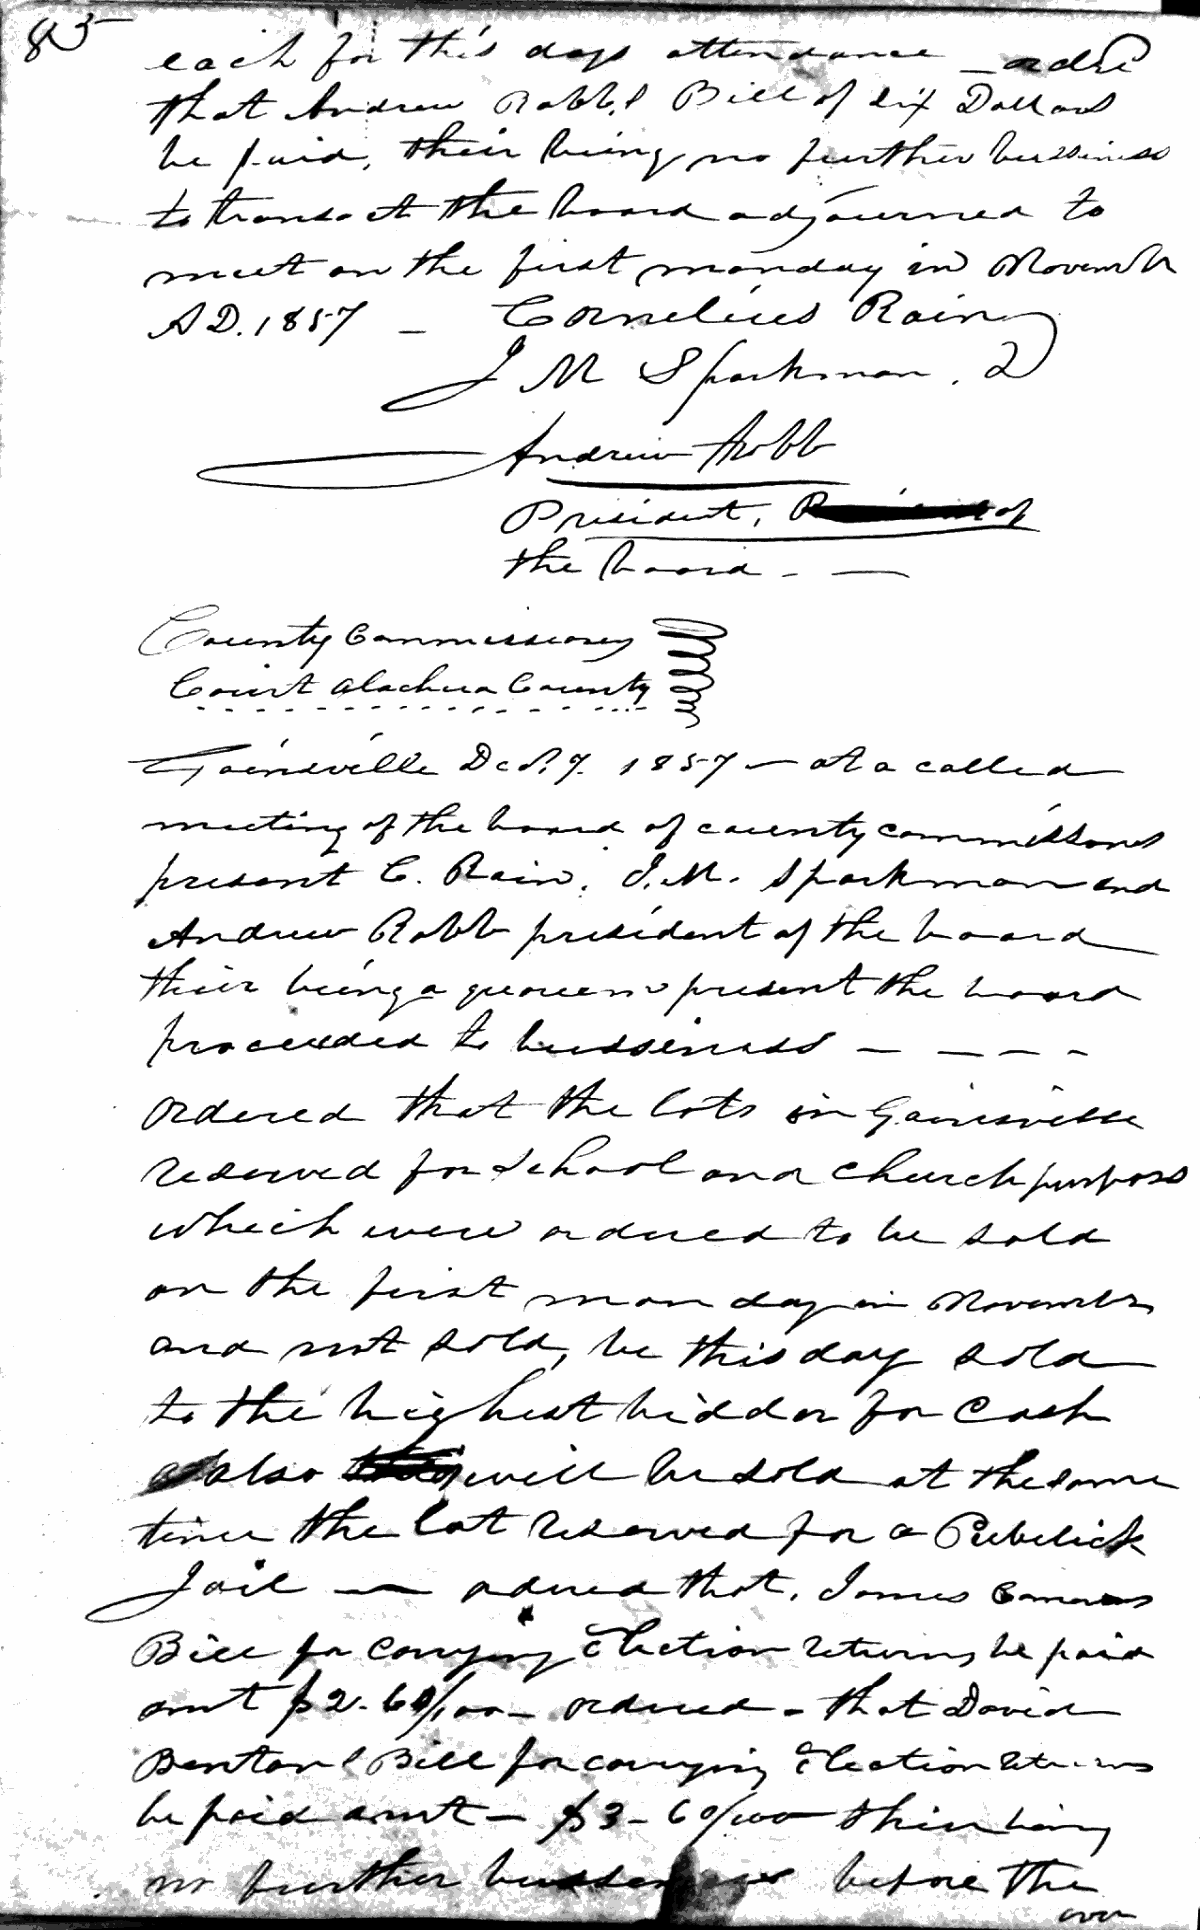 85
each for this days attendance – ordre
that Andrew Robb,s Bill of six Dollars
be paid, their being no further bussiness
to transact the board adjourned to
meet on the first monday in Novembr
AD. 1857 – Cornelius Rain
J M Sparkman
Andrew Robb
President, of
the board - —
County Commissioners
Court Alachua County
Gainsville Dec. 7. 1857 – at a called
meeting of the board of county commissoners
present C. Rain. J. M. Sparkman and
Andrew Robb president of the board
their being a quoreum present the board
proceeded to bussiness – – – -
ordered that the lots in Gainesville
reserved for School and Church purposs
which were ordered to be sold
on the first monday in November
and not sold, be this day sold
to the highest bidder for Cash
also will be sold at the same
time the lot reserved for a Publick
Jail — ordered that, James
Bill for carrying Election returns be paid
amt $2-60/100– ordered - that David
Benton,s Bill for carrying Election returns
be paid amt – $3-60/100 thier being
no further before the
over